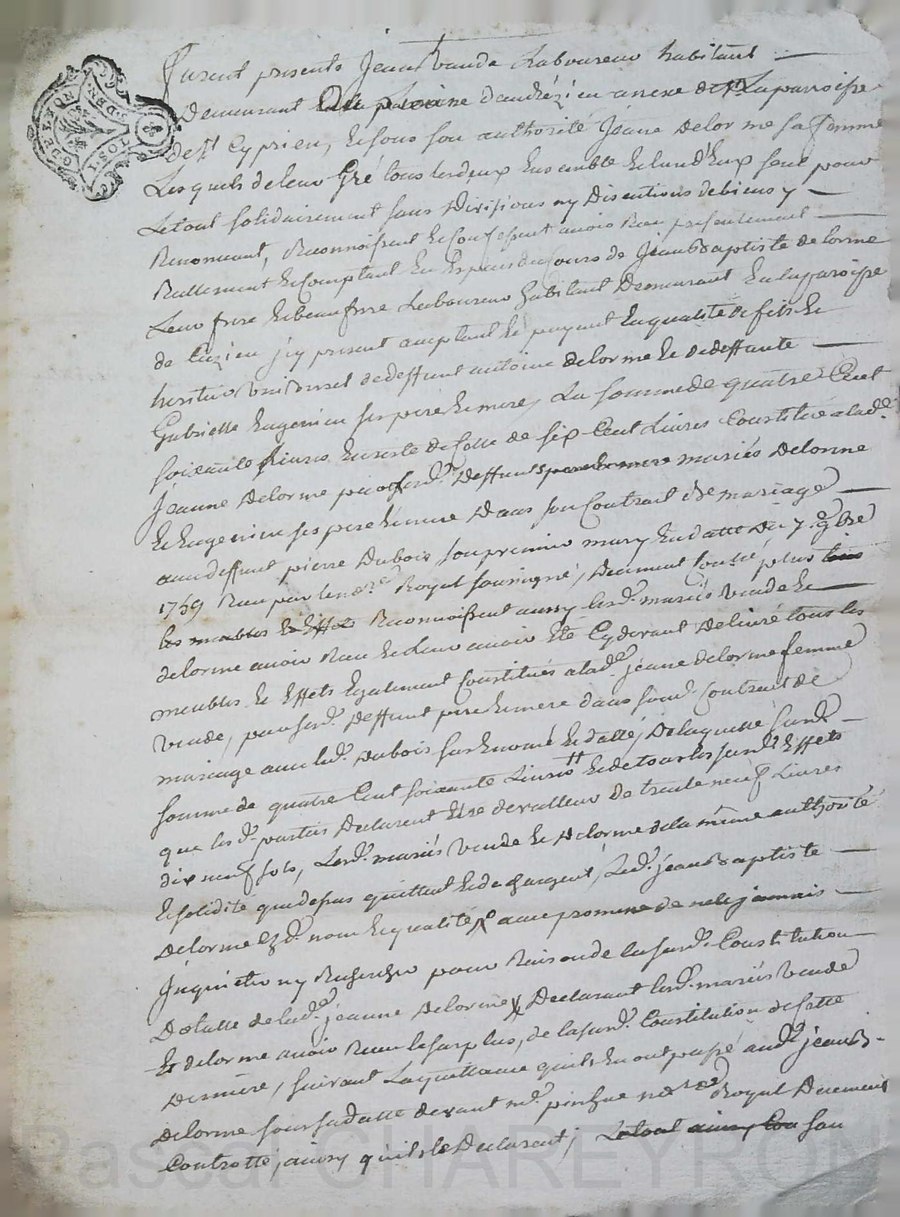 furent presents Jean Vende Laboureur habitant
Demeurant d'andrézieu annexe de La parroisse
de St Cyprien, Et sous son authorité Jeane Delorme sa femme
Lesquels de leur Gré tous les deux Ensemble Et l'un d'Eux seul pour
Le tout solidairement sans Divisions ny Discutions de biens y
Renonceant, Reconnoissent Et confessent avoir Reçu presentement
Reellement Et Comptant En Espices du cours de Jean Baptiste delorme
Leur frere Et beaufrere Laboureur habitant Demeurant En la parroisse
de Cuzieu icy present acceptant Et payant En qualité de fils Et
heritier Universel de deffunt antoine delorme Et de deffunte
Gabrielle Eugenieu ses pere Et mere, La somme de quatre Cent
soixante Livres En reste de Celle de six Cent Livres Constitué a lade.
Jeanne Delorme par sesd. Deffunts pere Et mere mariés Delorme
Et Eugenieu ses pere Et mere Dans son Contract De mariage
avec deffunt pierre Dubois son premier mary En datte Du 7 9bre
1769 Reçu par le nore Royal soussigné, Duement Controllé, plus
les meubles Et Effets Reconnoissent aussy lesd. mariés Vende Et
delorme avoir Reçu Et Leur avoir Eté Cy devant Delivré tous les
meubles Et Effets Egalement Constitués a lade. jeane delorme femme
Vende, par sesd. Deffunt pere Et mere dans sond. Contract de
mariage avec led. Dubois sus Enoncé Et datté, De laquelle susd.
somme de quatre Cent soixante Livres Et de tous les susd. Effets
que lesd. parties Declarent Etre de valleur De trente neuf Livres
dix neuf sols, Lesd. mariés Vende Et Delorme de la même authorité
Et solidité que dessus quittent Et dechargent, Led. jean Baptiste
Delorme Esd. nom Et qualité, avec promesse de ne le jamais
Jnquietter ny Rechercher pour Raison de la susd. Constitution
Dotalle de lad. jeanne Delorme Declarant lesd. mariés Vende
Et delorme avoir Reçu le surplus, de la susd. Constitution de Cette
Derniere, suivant La quittance qu'ils En ont passé aud. jean B.
Delorme sous sa datte devant me. nore Royal Duement
Controllé, ainsy qu'ils le Declarent, Le tout ainsy
Pascal CHAREYRON